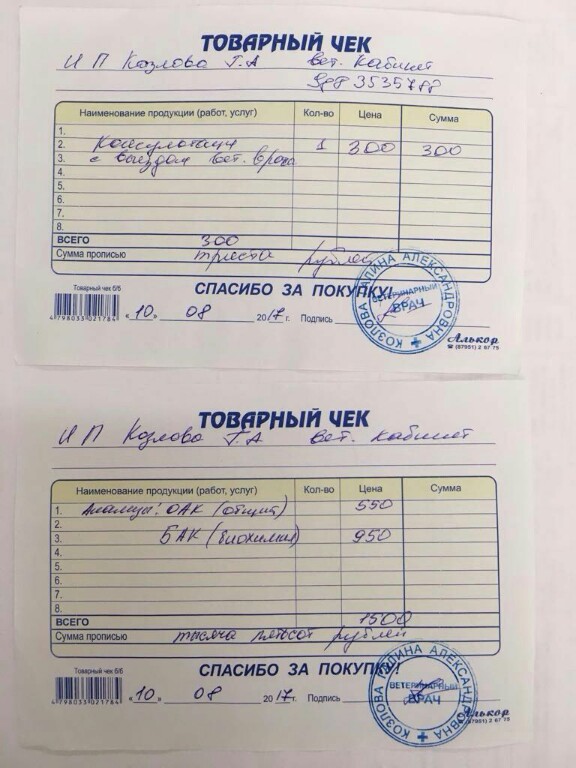 ТОВАРНЫЙ ЧЕК
ИП Козлова Г.А вет. кабинет
Наименование продукции (работ, услуг) Кол-во Цена Сумма
1.
2. Консультация 1 300 300
3. с выездом вет. врача
4.
5.
6.
7.
8.
ВСЕГО 300
Сумма прописью триста рублей
Товарный чек б/б
СПАСИБО ЗА ПОКУПКУ!
4798033021784 «10» 08 2017г. Подпись
КОЗЛОВА ГАЛИНА АЛЕКСАНДРОВНА
ВЕТЕРИНАРНЫЙ
ВРАЧ
Алькор
(87951) 2 67 75
ТОВАРНЫЙ ЧЕК
ИП Козлова Г.А вет. кабинет
Наименование продукции (работ, услуг) Кол-во Цена Сумма
1. Анализы: ОАК (общий) 550
2.
3. БАК (биохимия) 950
4.
5.
6.
7.
8.
ВСЕГО 1500
Сумма прописью тысяча пятьсот рублей
Товарный чек б/б
СПАСИБО ЗА ПОКУПКУ!
4798033021784 «10» 08 2017г. Подпись
КОЗЛОВА ГАЛИНА АЛЕКСАНДРОВНА
ВЕТЕРИНАРНЫЙ
ВРАЧ
Алькор
(87951) 2 67 75